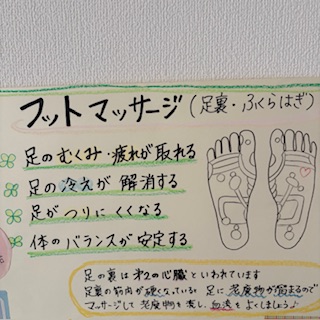 フットマッサージ(足裏・ふくらはぎ)
足のむくみ・疲れが取れる
足の冷えが解消する
足がつりにくくなる
体のバランスが安定する
足の裏は第2の心臓といわれています
足裏の筋肉が硬くなっている 足に老廃物が溜まるので
マッサージして老廃物を流し、血流をよくしましょう♪